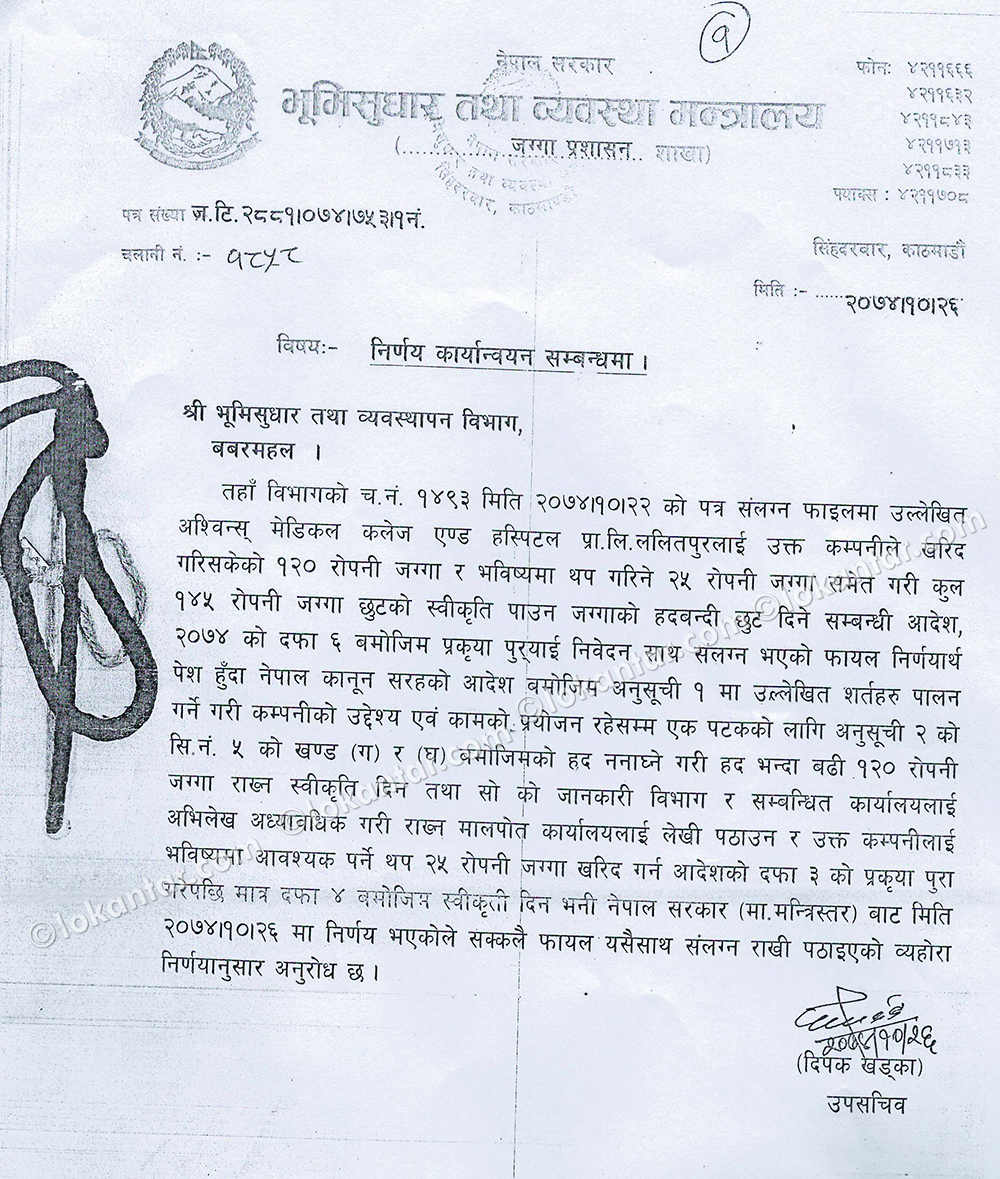 १
नेपाल सरकार
भूमिसुधार तथा व्यवस्था मन्त्रालय
(.............जग्गा प्रशासन शाखा)
सिंहदरवार, काठमाण्डौ
फोनः ४२११६६६
४२११६३२
४२११८४३
४२११७१३
४२११८३३
फ्याक्स : ४२११७०८
पत्र संख्या ज.टि.२८८१।०७४।७५३।१नं.
चलानी नं. :- १८५८
सिंहदरवार, काठमाडौं
मिति :- ......२०७४।१०।२६
विषयः- निर्णय कार्यान्वयन सम्बन्धमा ।
श्री भूमिसुधार तथा व्यवस्थापन विभाग,
बबरमहल ।
तहाँ विभागको च.नं. १४९३ मिति २०७४।१०।२२ को पत्र संलग्न फाइलमा उल्लेखित
अश्विन्स् मेडिकल कलेज एण्ड हस्पिटल प्रा.लि.ललितपुरलाई उक्त कम्पनीले खरिद
गरिसकेको १२० रोपनी जग्गा र भविष्यमा थप गरिने २५ रोपनी जग्गा समेत गरी कुल
१४५ रोपनी जग्गा छुटको स्वीकृति पाउन जग्गाको हदबन्दी छुट दिने सम्बन्धी आदेश,
२०७४ को दफा ६ बमोजिम प्रकृया पुर्‍याई निवेदन साथ संलग्न भएको फायल निर्णयार्थ
पेश हुँदा नेपाल कानून सरहको आदेश बमोजिम अनुसूची १ मा उल्लेखित शर्तहरु पालन
गर्ने गरी कम्पनीको उद्देश्य एवं कामको प्रयोजन रहेसम्म एक पटकको लागि अनुसूची २ को
सि.नं. ५ को खण्ड (ग) र (घ) बमोजिमको हद ननाघ्ने गरी हद भन्दा बढी १२० रोपनी
जग्गा राख्न स्वीकृति दिन तथा सो को जानकारी विभाग र सम्बन्धित कार्यालयलाई
अभिलेख अध्यावधिक गरी राख्न मालपोत कार्यालयलाई लेखी पठाउन र उक्त कम्पनीलाई
भविष्यमा आवश्यक पर्ने थप २५ रोपनी जग्गा खरिद गर्न आदेशको दफा ३ को प्रकृया पुरा
गरेपछि मात्र दफा ४ बमोजिम स्वीकृती दिन भनी नेपाल सरकार (मा.मन्त्रिस्तर) बाट मिति
२०७४।१०।२६ मा निर्णय भएकोले सक्कलै फायल यसैसाथ संलग्न राखी पठाइएको व्यहोरा
निर्णयानुसार अनुरोध छ ।
२०७४।१०।२६
(दिपक खड्का)
उपसचिव
©lokantar.com ©lokantar.com ©lokantar.com ©lokantar.com